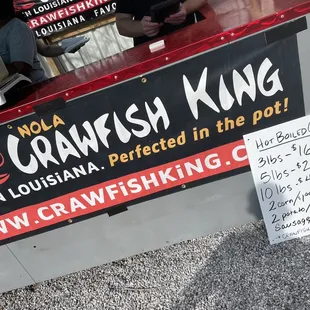 CRAWFISH KI
LOUISIANA FAVO
CRAWFISHKING
NOLA
CRAWFISH KING
LOUISIANA. Perfected in the pot!
WWW.CRAWFISHKING.C
HOT BOILED
3lbs - $16
5lbs - $2
10lbs - $4
2 corn/
2 potato/
Sausage